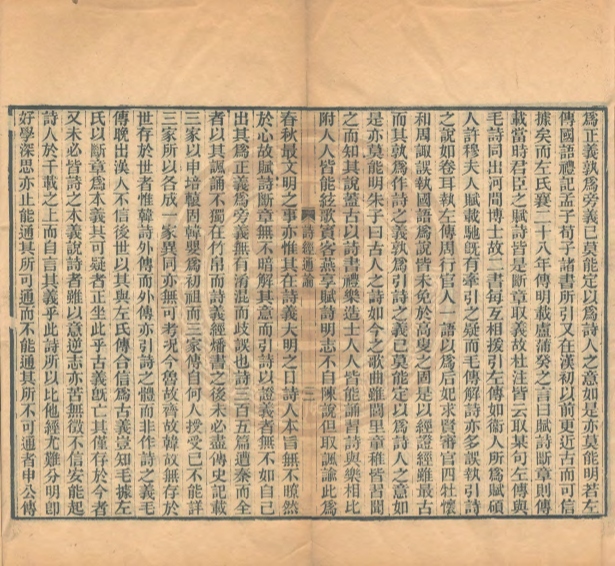 爲正義孰爲旁義已莫能定以爲詩人之意如是亦莫能明若左
傳國語禮記孟子荀子諸書所引又在漢初以前更近古而可信
據矣而左氏襄二十八年傳明載盧蒲癸之言曰賦詩斷章則傳
載當時君臣之賦詩皆是斷章取義故杜注皆云取某句左傳與
毛詩同出河間博士故二書每互相援引左傳如衞人所爲賦碩
人許穆夫人賦載馳旣有牽引之疑而毛傳解詩亦多誤執引詩
之說如卷耳執左傳周行官人一語以爲后妃求賢審官四牡懷
和周諏誤執國語爲說皆未免於高叟之固是以經證經雖最古
而其孰爲作詩之義孰爲引詩之義已莫能定以爲詩人之意如
是亦莫能明朱子曰古人之詩如今之歌曲雖閭里童稚皆習聞
之而知其說蓋古以詩書禮樂造士人人皆能誦習詩與樂相比
附人人皆能弦歌賓客燕享賦詩明志不自陳說但取諷諭此爲
詩經通論
春秋最文明之事亦惟其在詩義大明之日詩人本旨無不暸然
於心故賦詩斷章無不暗解其意而引詩以證義者無不如自己
出其爲正義爲旁義無有淆混而歧誤也詩三百五篇遭秦而全
者以其諷誦不獨在竹帛而詩義經燔書之後未必盡傳史記載
三家以申培轅固韓嬰爲初祖而三家傳自何人授受已不能詳
三家所以各成一家異同亦無可考況今魯故齊故韓故無存於
世存於世者惟韓詩外傳而外傳亦引詩之體而非作詩之義毛
傳晚出漢人不信後世以其與左氏傳合信爲古義豈知毛據左
氏以斷章爲本義其可疑者正坐此乎古義旣亡其僅存於今者
又未必皆詩之本義說詩者雖以意逆志亦苦無徵不信安能起
詩人於千載之上而自言其義乎此詩所以比他經尤難分明卽
好學深思亦止能通其所可通而不能通其所不可通者申公傳